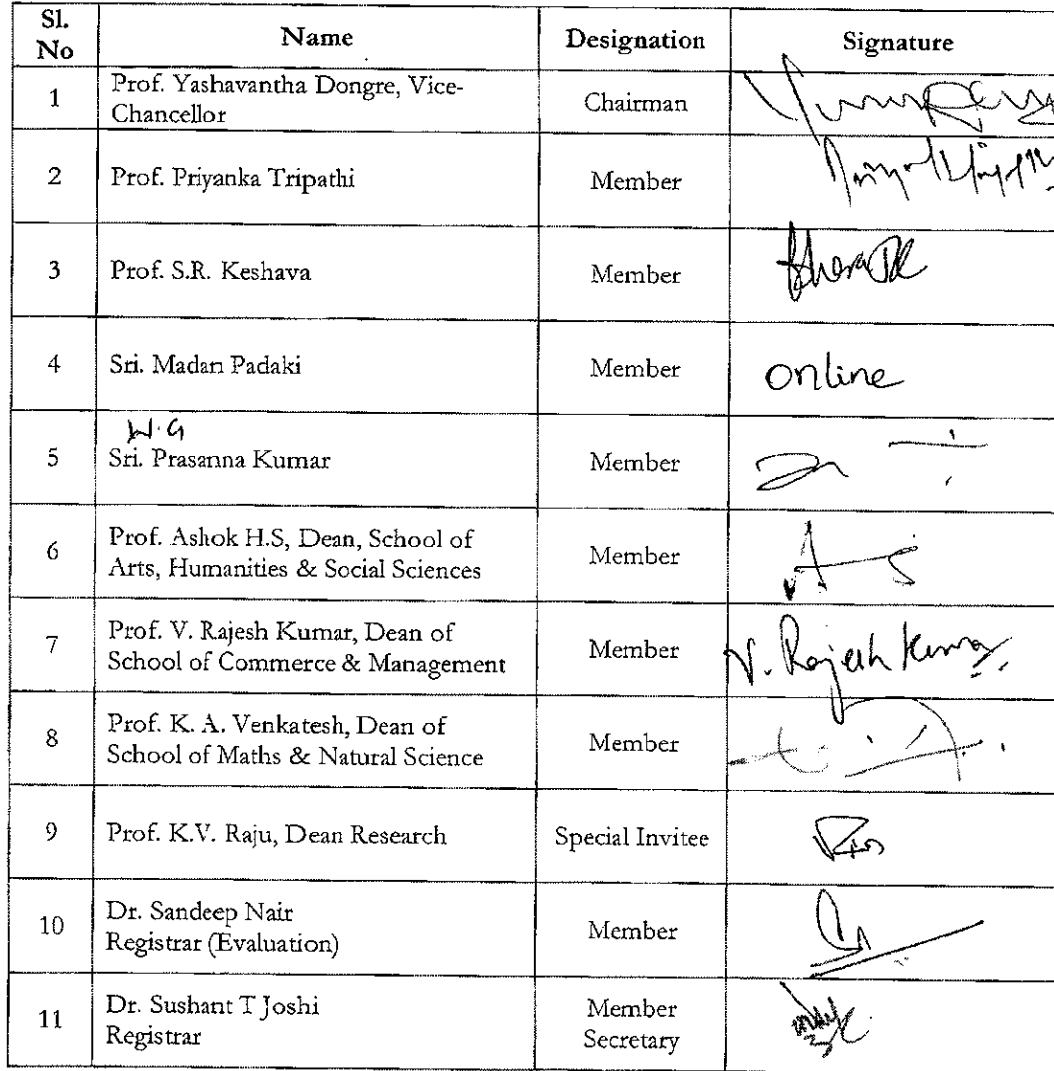 Sl. No Name Designation Signature
1 Prof. Yashavantha Dongre, Vice-
Chancellor Chairman
2 Prof. Priyanka Tripathi Member
3 Prof. S.R. Keshava Member
4 Sri. Madan Padaki Member online
5 Sri. Prasanna Kumar Member
6 Prof. Ashok H.S, Dean, School of
Arts, Humanities & Social Sciences Member
7 Prof. V. Rajesh Kumar, Dean of
School of Commerce & Management Member V. Rajesh Kumar
8 Prof. K. A. Venkatesh, Dean of
School of Maths & Natural Science Member
9 Prof. K.V. Raju, Dean Research Special Invitee
10 Dr. Sandeep Nair
Registrar (Evaluation) Member
11 Dr. Sushant T Joshi
Registrar Member
Secretary